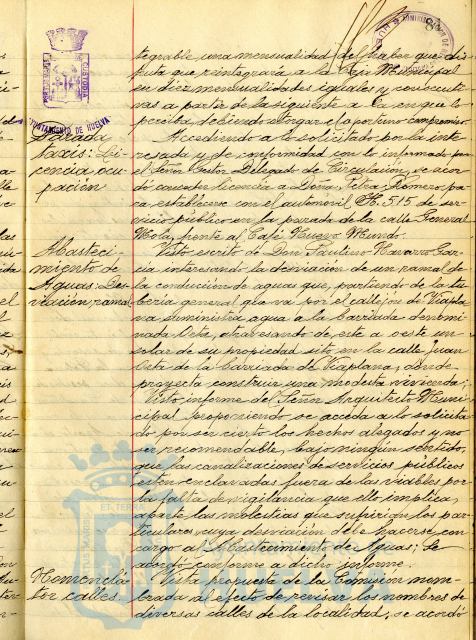 84
PORTUS MARIS ET TERRÆ CUSTODIA
AYUNTAMIENTO DE HUELVA
tegrable una mensualidad del haber que dis-
fruta que reintegrará a la Caja Municipal
en diez mensualidades iguales y consecuti-
vas a partir de la siguiente a la en que lo
perciba, debiendo otorgar el oportuno compromiso.
Parada
taxis: Li-
cencia ocu-
pación
Accediendo a lo solicitado por la inte-
resada y de conformidad con lo informado por
el Señor Gestor Delegado de Circulación, se acor-
dó conceder licencia a Doña Romero pa-
ra establecerse con el automóvil H. 515 de ser-
vicio público en la parada de la calle General
Mola, frente al Café Nuevo Mundo.
Abasteci-
miento de
Aguas: Des-
viación ramal
Visto escrito de Don Paulino Navarro Gar-
cía interesando la desviación de un ramal de
la conducción de aguas que, partiendo de la tu-
bería general que va por el callejón de Viapla-
na suministra agua a la barriada denomi-
nada Orta, atravesando de este a oeste un
solar de su propiedad sito en la calle Juan
Orta de la Barriada de Viaplana, donde
proyecta construir una modesta vivienda;
Visto informe del Señor Arquitecto Muni-
cipal proponiendo se acceda a lo solicita-
do por ser cierto los hechos alegados y no
ser recomendable, bajo ningun sentido,
que las canalizaciones de servicios públicos
estén enclavadas fuera de las viables por
la falta de vigilancia que ello implica,
aparte las molestias que sufririan los par-
ticulares, cuya desviación debe hacerse con
cargo al Abastecimiento de Aguas; Se
acordó conforme a dicho informe.
Nomenclá-
tor calles
Vista propuesta de la Comisión nom-
brada al efecto de revisar los nombres de
diversas calles de la localidad, se acordó